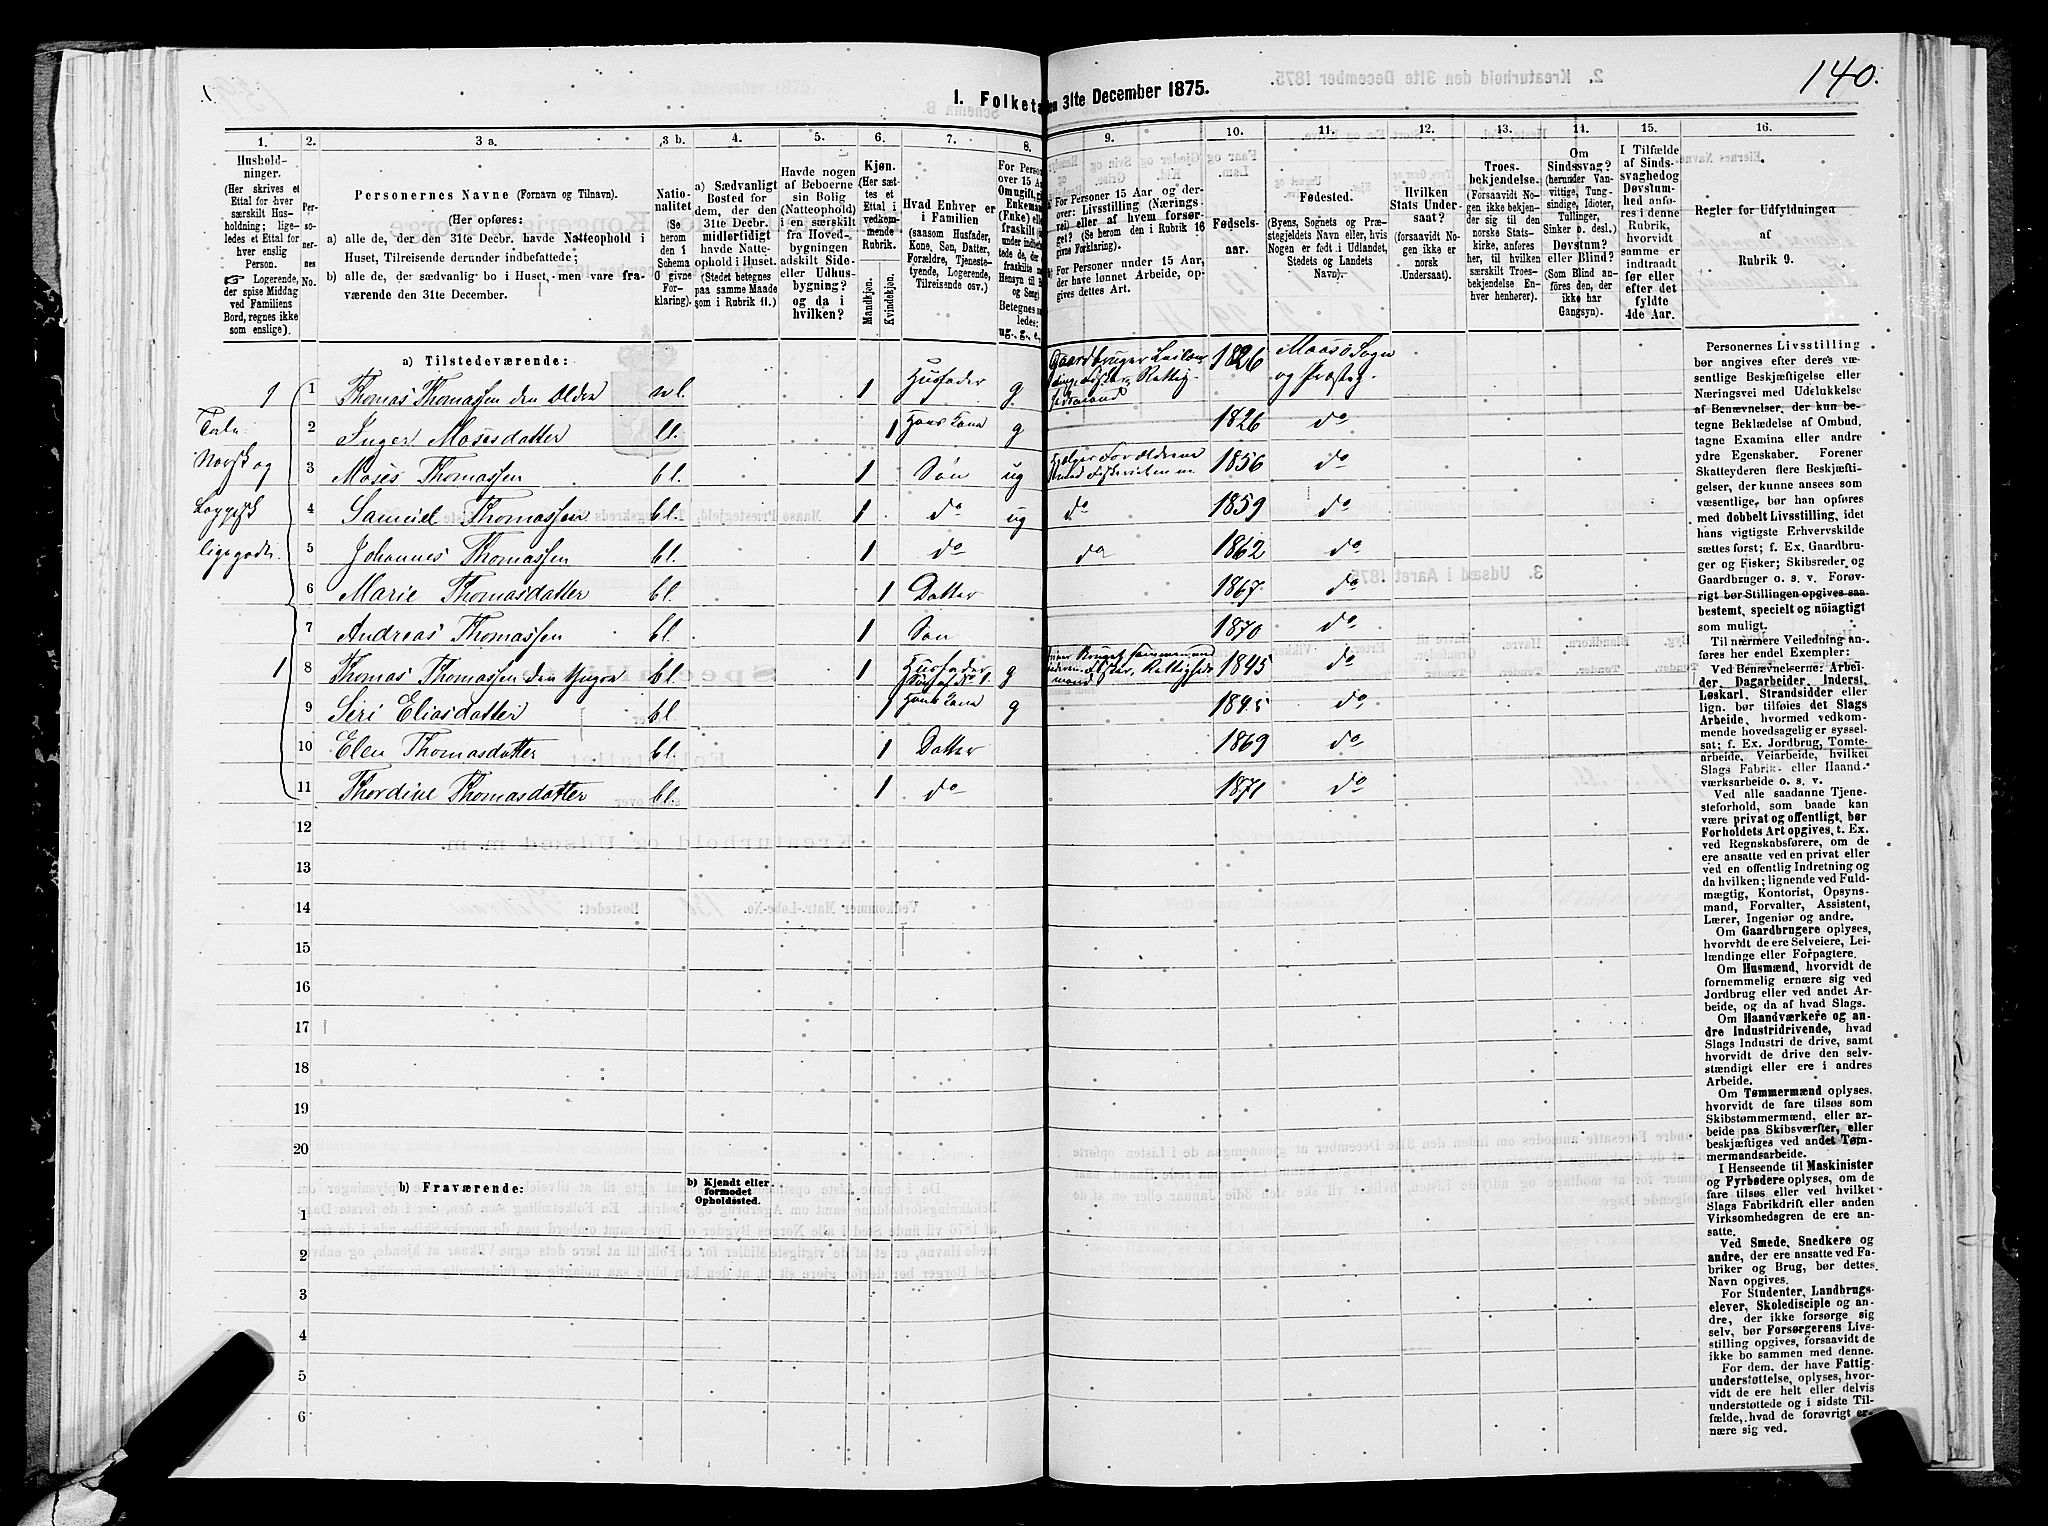 140.
1. Folket en 31te December 1875.
1. 2. 3 a. 3 b. 4. 5. 6. 7. 8. 9. 10. 11. 12. 13. 14. 15. 16.
Hushold-
ninger.
(Her skrives et
Ettal for hver
særskilt Hus-
holdning; lige-
ledes et Ettal for
hver enslig
Person.
Logerende,
der spise Middag
ved Familiens
Bord, regnes ikke
som enslige).
Per-
so-
ner-
nes
No.
Personernes Navne (Fornavn og Tilnavn).
(Her opføres:
a) alle de, der den 31te Decbr. havde Natteophold i
Huset, Tilreisende derunder indbefattede;
b) alle de, der sædvanlig bo i Huset, men vare fra-
værende den 31te December.
Natio-
nalitet
(Se
herom
den i
Schema
C givne
For-
klaring).
a) Sædvanligt
Bosted for
dem, der den
31te Decbr.
midlertidigt
havde Natte-
ophold i Huset.
(Stedet betegnes
paa samme Maade
som i Rubrik 11.)
Havde nogen
af Beboerne
sin Bolig
(Natteophold)
i en særskilt
fra Hoved-
bygningen
adskilt Side-
eller Udhus-
bygning?
og da i
hvilken?
Kjøn.
(Her sæt-
tes et
Ettal i
vedkom-
mende
Rubrik.
Mandkjøn.
Kvindekjøn.
Hvad Enhver er
i Familien
(saasom Husfader,
Kone, Søn, Datter,
Forældre, Tjeneste-
tyende, Logerende,
Tilreisende osv.)
For Person
over 15 Aar
Omugift,
Enkeman
(Enke) elle
fraskilt
Betegnes s
ledes:
ug., g., e.,
For Personer 15 Aar og der-
over: Livsstilling (Nærings-
vei) eller af hvem forsør-
get? (Se herom i Rubrik 16
givne Forklaring).
For Personer under 15 Aar,
der have lønnet Arbeide, op-
gives dettes Art.
Fødsels-
aar.
Fødested.
(Byens, Sognets og Præ-
stegjeldets Navn eller, hvis
Nogen er født i Udlandet,
Stedets og Landets
Navn).
Hvilken
Stats Under-
saat?
(forsaavidt No-
gen ikke er
norsk
Undersaat).
Troes-
bekjendelse.
(Forsaavidt No-
gen ikke bekjen-
der sig til den
norske Stats-
kirke, anføres
her, til hvilken
særskilt Troes-
bekjendelse En-
hver henhører).
Om
Sindssvag?
(herunder Van-
vittige, Tung-
sindige, Idioter,
Tullinger,
Sinker o. desl.)
Døvstum?
eller Blind?
(Som Blind an-
føres den, der
ikke har
Gangsyn).
I Tilfælde
af Sinds-
svaghed og
Døvstum-
hed anfø-
res i denne
Rubrik,
hvorvidt
samme er
indtraadt
før eller
efter det
fyldte
4de Aar.
Regler for Udfyldningen
af
Rubrik 9.
a) Tilstedeværende:
1 1 Thomas Thomassen den Ældre 1 Husfader g Gaardbruger 1826 Maasø Sogn og Præsteg.
2 Inger Mosesdatter 1 Hans Kone g 1826 do
Norsk og
3 Moses Thomassen bl. 1 Søn ug 1856 do
4 Samuel Thomassen bl. 1 do ug do 1859 do
5 Johannes Thomassen bl. 1 do do 1862 do
6 Marie Thomasdatter bl. 1 Datter 1867. do
7 Andreas Thomassen bl. 1 Søn 1870 do
1 8 Thomas Thomassen den Yngre bl. 1 Husfader g 1845 do
9 Siri Eliasdatter bl. 1 Hans Kone g 1845 do
10 Elen Thomasdatter bl. 1 Datter 1869 do
11 Thordine Thomasdatter bl. 1 do 1871 do
12
13
14
15
16
17
18
19
20
b) Fraværende:
b) Kjendt eller
formodet
Opholdssted.
1
2
3
4
5
6
Personernes Livsstilling
bør angives efter deres væ-
sentlige Beskjæftigelse eller
Næringsvei med Udelukkelse
af Benævnelser, der kun be-
tegne Beklædelse af Ombud,
tagne Examina eller andre
ydre Egenskaber. Forener
Skatteyderen flere Beskjæf-
tigelser, der kunne ansees som
væsentlige, bør han opføres
med dobbelt Livsstilling, idet
hans vigtigste Erhvervskilde
sættes først; f. Ex. Gaardbru-
ger og Fisker; Skibsreder og
Gaardbruger o. s. v. Forøv-
rigt bør Stillingen opgives saa
bestemt, specielt og nøiagtigt
som muligt.
Til nærmere Veiledning an-
føres her endel Exempler:
Ved Benævnelserne: Arbei-
der, Dagarbeider, Inderst,
Løskarl, Strandsidder eller
lign. bør tilføies det Slags
Arbeide, hvormed vedkom-
mende hovedsagelig er syssel-
sat; f. Ex. Jordbrug, Tomte-
arbeide, Veiarbeide, hvilket
Slags Fabrik- eller Haand-
værksarbeide o. s. v.
Ved alle saadanne Tjene-
steforhold, som baade kan
være privat og offentligt, bør
Forholdets Art opgives, t. Ex.
ved Regnskabsførere, om de
ere ansatte ved en privat eller
ved en offentlig Indretning og
da hvilken; lignende ved Fuld-
mægtig, Kontorist, Opsyns-
mand, Forvalter, Assistent,
Lærer, Ingeniør og andre.
Om Gaardbrugere oplyses,
hvorvidt de ere Selveiere, Lei-
lændinge eller Forpagtere.
Om Husmænd, hvorvidt de
fornemmelig ernære sig ved
Jordbrug eller ved andet Ar-
beide, og da af hvad Slags.
Om Haandværkere og an-
dre Industridrivende, hvad
Slags Industri de drive, samt
hvorvidt de drive den selv-
stændigt eller ere i andres
Arbeide.
Om Tømmermænd oplyses,
hvorvidt de fare tilsøs som
Skibstømmermænd, eller ar-
beide paa Skibsværfter, eller
beskjæftiges ved andet Tøm-
mermandsarbeide.
I Henseende til Maskinister
og Fyrbødere oplyses, om de
fare tilsøs eller ved hvilket
Slags Fabrikdrift eller anden
Virksomhedsgren de ere an-
satte.
Ved Smede, Snedkere og
andre, der ere ansatte ved Fa-
briker og Brug, bør dettes
Navn opgives.
For Studenter, Landbrugs-
elever, Skoledisciple og an-
dre, der ikke forsørge sig
selv, bør Forsørgerens Livs-
stilling opgives, forsaavidt de
ikke bo sammen med denne.
For dem, der have Fattig-
understøttelse, oplyses, hvor-
vidt de ere helt eller delvis
understøttede og i sidste Til-
fælde, hvad de forøvrigt er-
nære sig ved.